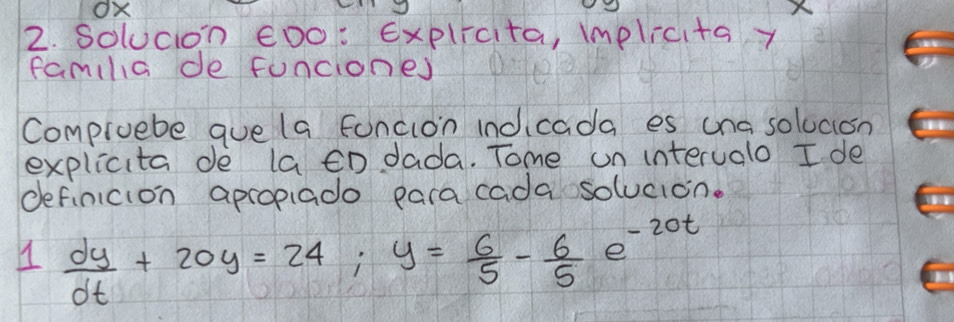 dx
2. Solución EDO: Explícita, implícita y
familia de funciones
Compruebe que la función indicada es una solución
explícita de la ED dada. Tome un intervalo I de
definición apropiado para cada solución.
1 dy/dt + 20y = 24 ; y = 6/5 - 6/5 e^-20t